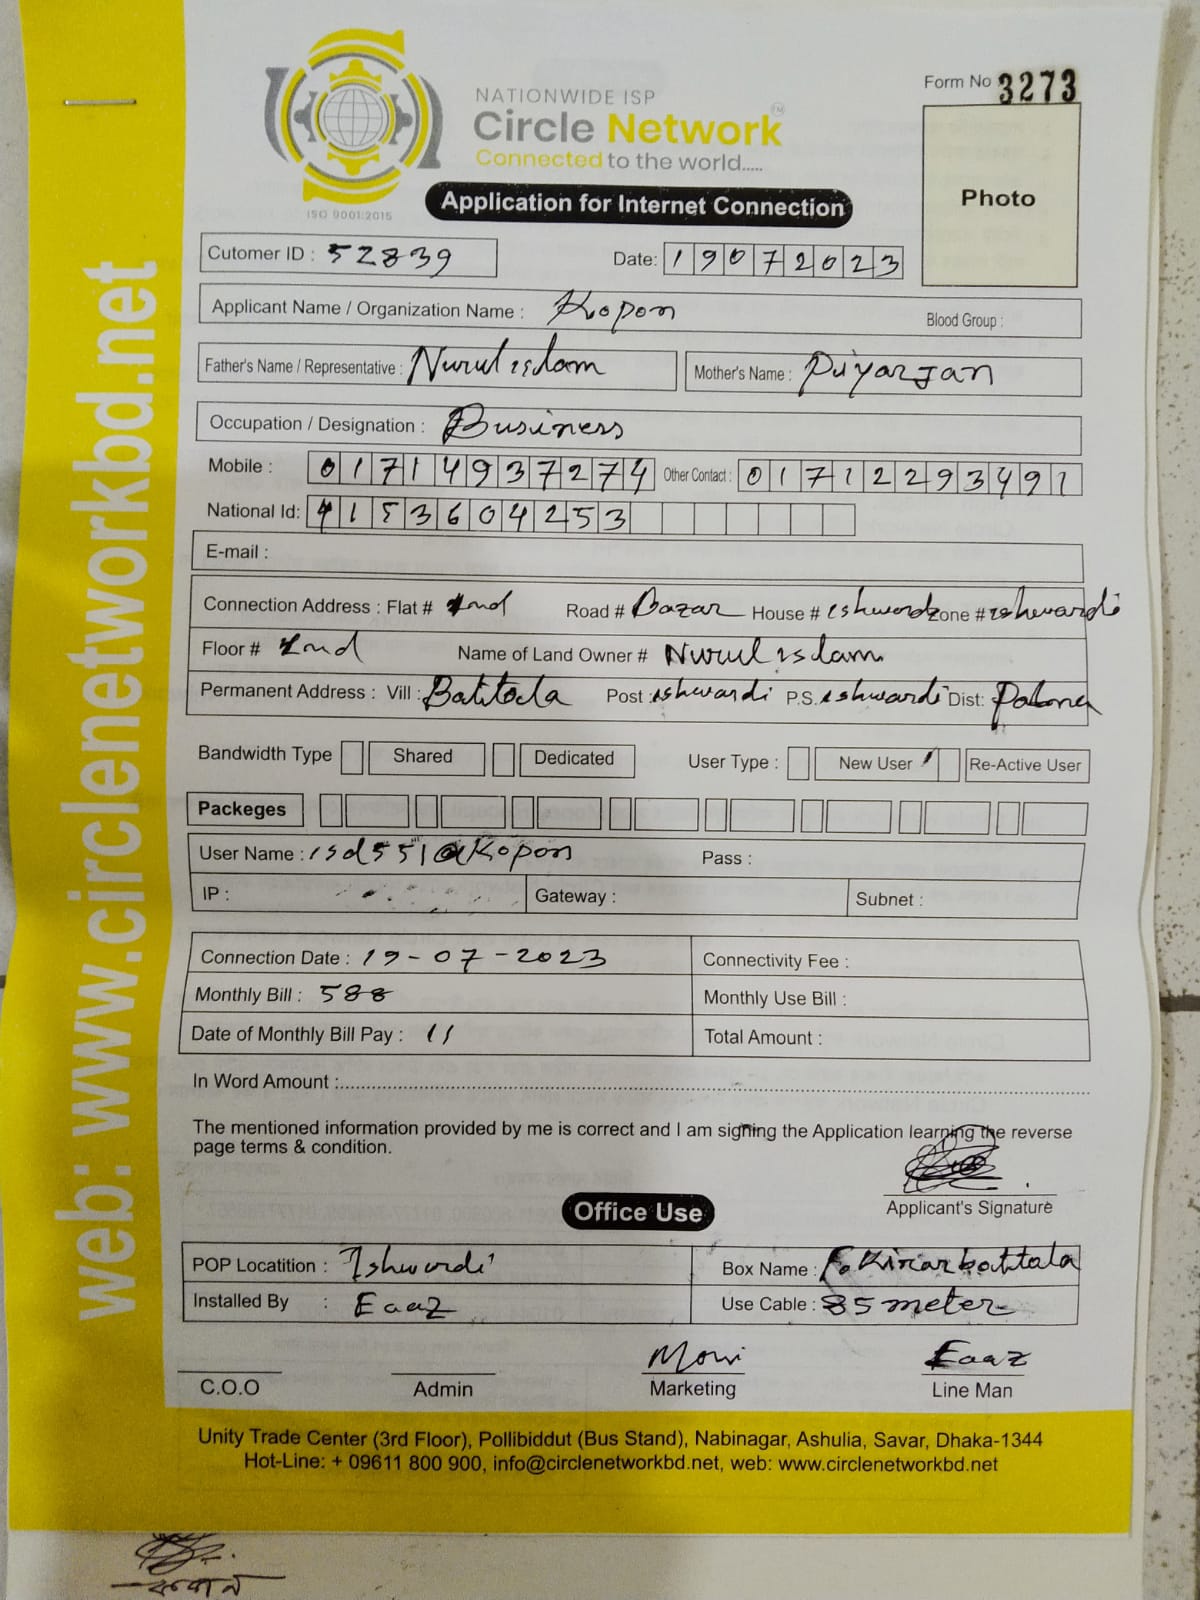 Form No 3273
NATIONWIDE ISP
Circle Network
TM
Connected to the world.....
ISO 9001:2015
Application for Internet Connection
Photo
Cutomer ID : 52839
Date: 19072023
Applicant Name / Organization Name : Kopon
Blood Group :
Father's Name / Representative : Nurul islam
Mother's Name : Piyarjan
Occupation / Designation : Business
Mobile : 01714937274 Other Contact : 01712293491
National Id: 4153604253
E-mail :
Connection Address : Flat # 2nd Road # Bazar House # ishwordi Zone # ishwardi
Floor # 2nd Name of Land Owner # Nurul islam
Permanent Address : Vill : Battola Post : ishwardi P.S. ishwardi Dist: Pabna
Bandwidth Type Shared Dedicated User Type : New User Re-Active User
Packeges
User Name : isd551@Kopon Pass :
IP : Gateway : Subnet :
Connection Date : 19-07-2023 Connectivity Fee :
Monthly Bill : 588 Monthly Use Bill :
Date of Monthly Bill Pay : 11 Total Amount :
In Word Amount :
The mentioned information provided by me is correct and I am signing the Application learning the reverse
page terms & condition.
Applicant's Signature
Office Use
POP Locatition : Ishwordi Box Name : Fokirarbattala
Installed By : Eaaz Use Cable : 85 meter
Eaaz
C.O.O Admin Marketing Line Man
Unity Trade Center (3rd Floor), Pollibiddut (Bus Stand), Nabinagar, Ashulia, Savar, Dhaka-1344
Hot-Line: + 09611 800 900, info@circlenetworkbd.net, web: www.circlenetworkbd.net
web: www.circlenetworkbd.net